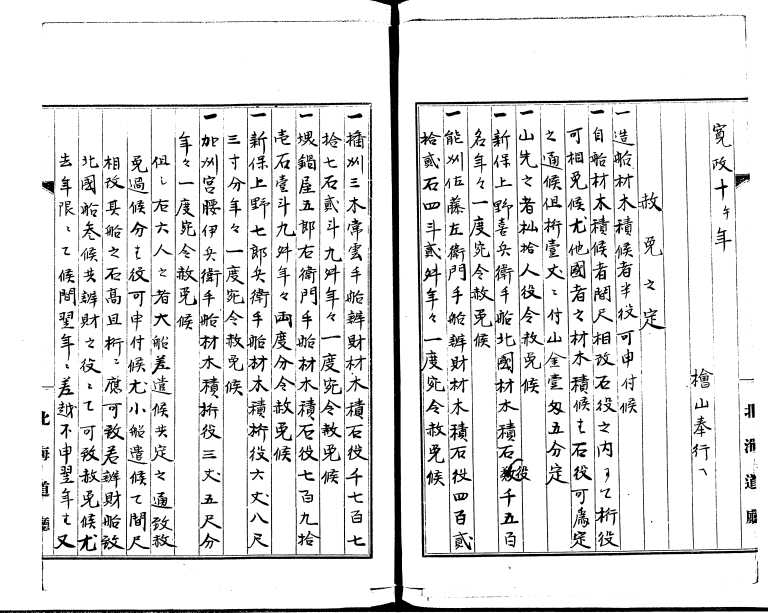 寛政十午年
檜山奉行へ
赦免之定
一造船材木積候者半役可申付候
一自船材木積候者間尺相改石役之内ニて桁役
可相免候尤他國者之材木積候ても石役可為定
之通候但桁壹丈ニ付山金壹匁五分定
一山先之者杣拾人役令赦免候
一新保上野喜兵衛手船北國材木積石役千五百
名年々一度宛令赦免候
一能州佐藤左衛門手船辨財材木積石役四百貳
拾貳石四斗貳舛年々一度宛令赦免候
一播州三木常雲手船辨財材木積石役千七百七
拾七石貳斗九舛年々一度宛令赦免候
一堺鍋屋五郎右衛門手船材木積石役七百九拾
壱石壹斗九舛年々両度分令赦免候
一新保上野七郎兵衛手船材木積桁役六丈八尺
三寸分年々一度宛令赦免候
一加州宮腰伊兵衛手船材木積桁役三丈五尺分
年々一度宛令赦免候
但シ右六人之者大船差遣候共定之通致赦
免過候分ハ役可申付候尤小船遣候て間尺
相改其船之石高且桁ニ應可致若辨財船致
北國船参候共辨財之役ニて可致赦免候尤
去年限ニて候間翌年ニ差越不申翌年も又
北海道廳
北海道廳